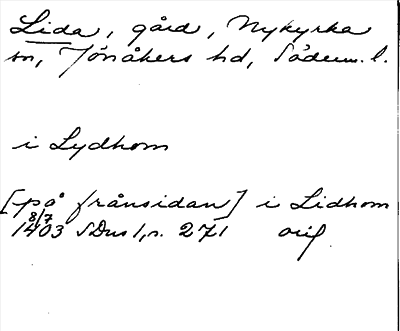 Lida, gård, Nykyrka
sn, Jönåkers hd, Söderm. l.
i Lydhom
[på frånsidan] i Lidhom
8/7
1403 SDns 1, s. 271 orig